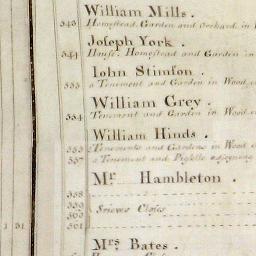 William Mills.
543 Homestead, Garden and Orchard in
Joseph York.
544 House, Homestead and Garden in
John Stimson.
533 a Tenement and Garden in Wood
William Grey.
534 Tenement and Garden in Wood
William Hinds.
535 2 Tenements and Gardens in Wood
537 a Tenement and Pightle adjoining
Mr Hambleton.
558
559
560 Closes
561
1 31
Mrs Bates.